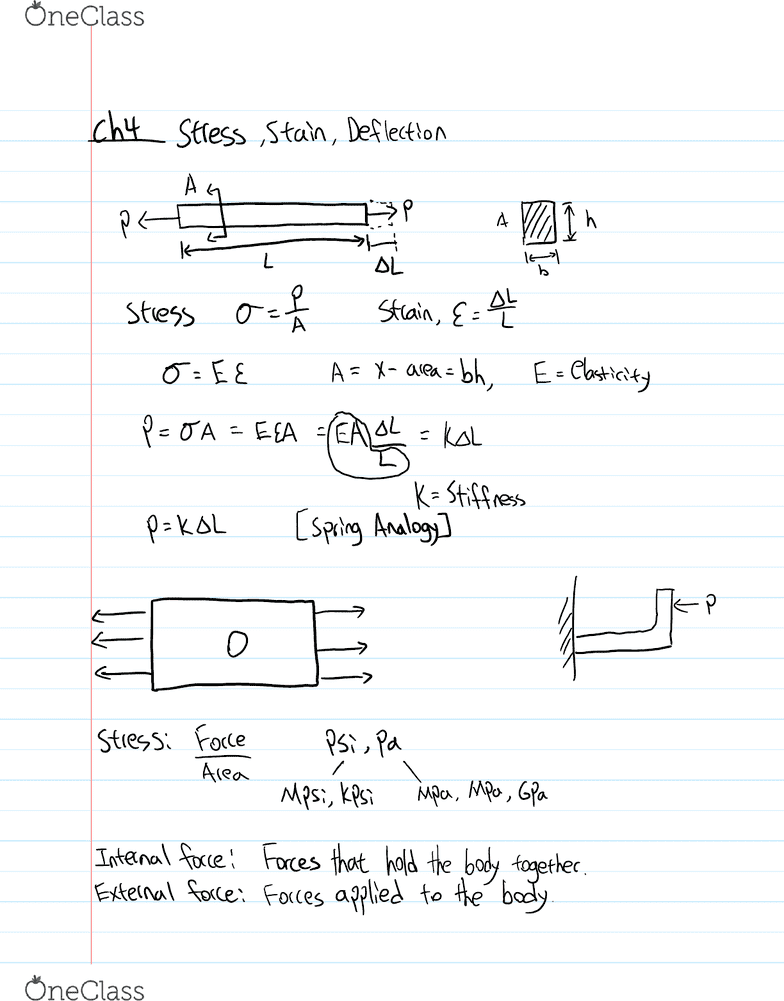 OneClass
Ch4 Stress, Stain, Deflection
A
P P
L ΔL
A h
b
Stress σ = P/A Strain, ε = ΔL/L
σ = E ε A = x-area = bh, E = Elasticity
P = σA = EεA = EA ΔL/L = KΔL
K = Stiffness
P = KΔL [Spring Analogy]
O
P
Stress: Force/Area Psi, Pa
Mpsi, Kpsi Mpa, Mpa, GPa
Internal force: Forces that hold the body together.
External force: Forces applied to the body.
OneClass